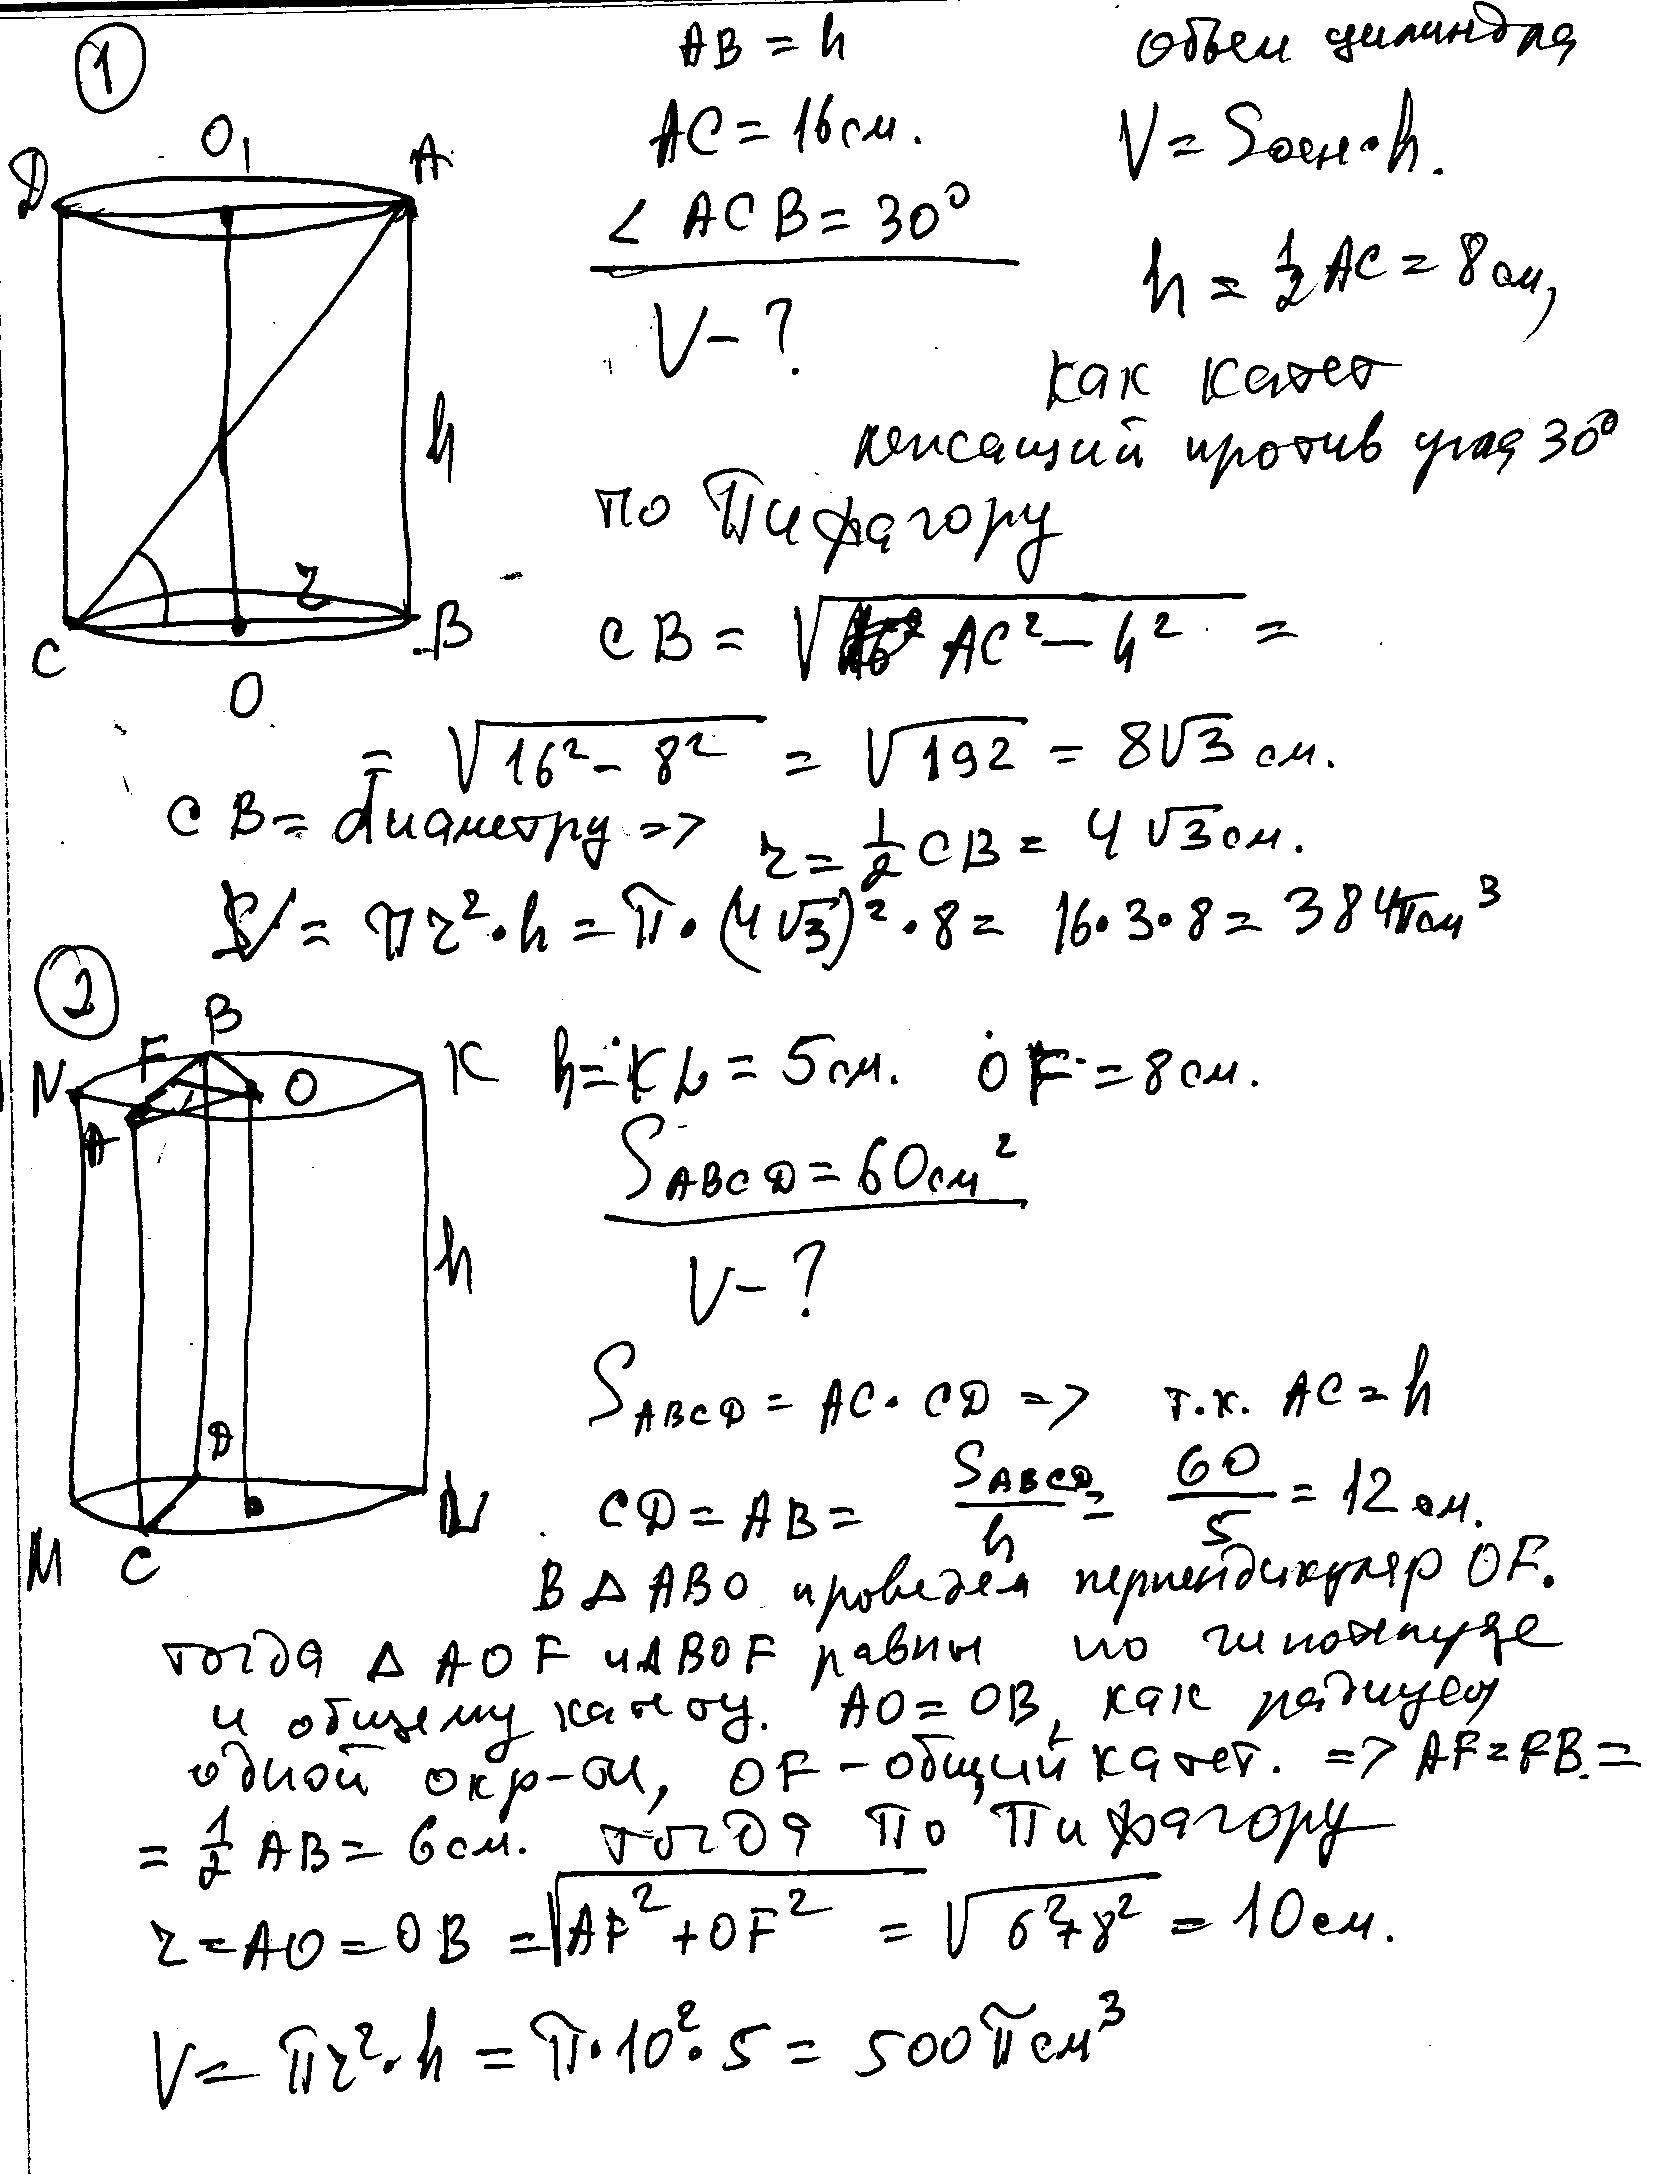 1
AB = h
AC = 16 см.
< ACB = 30°
V - ?
объем цилиндра
V = Sосн · h.
h = 1/2 AC = 8 см,
как катет
лежащий против угла 30°
D O1 A
h
r
C O B
по Пифагору
CB = √(AC² - h²) =
= √(16² - 8²) = √192 = 8√3 см.
CB = диаметру => r = 1/2 CB = 4√3 см.
V = πr² · h = π · (4√3)² · 8 = 16 · 3 · 8 = 384π см³
2
N F B O K
A
h
D
M C L
h = KL = 5 см. OF = 8 см.
S ABCD = 60 см²
V - ?
S ABCD = AC · CD => т.к. AC = h
CD = AB = S ABCD/h = 60/5 = 12 см.
В △ ABO проведем перпендикуляр OF.
тогда △ AOF и △ BOF равны по гипотенузе
и общему катету. AO = OB, как радиусы
одной окр-ти, OF - общий катет. => AF = FB =
= 1/2 AB = 6 см. тогда по Пифагору
r = AO = OB = √(AF² + OF²) = √(6² + 8²) = 10 см.
V = πr² · h = π · 10² · 5 = 500π см³